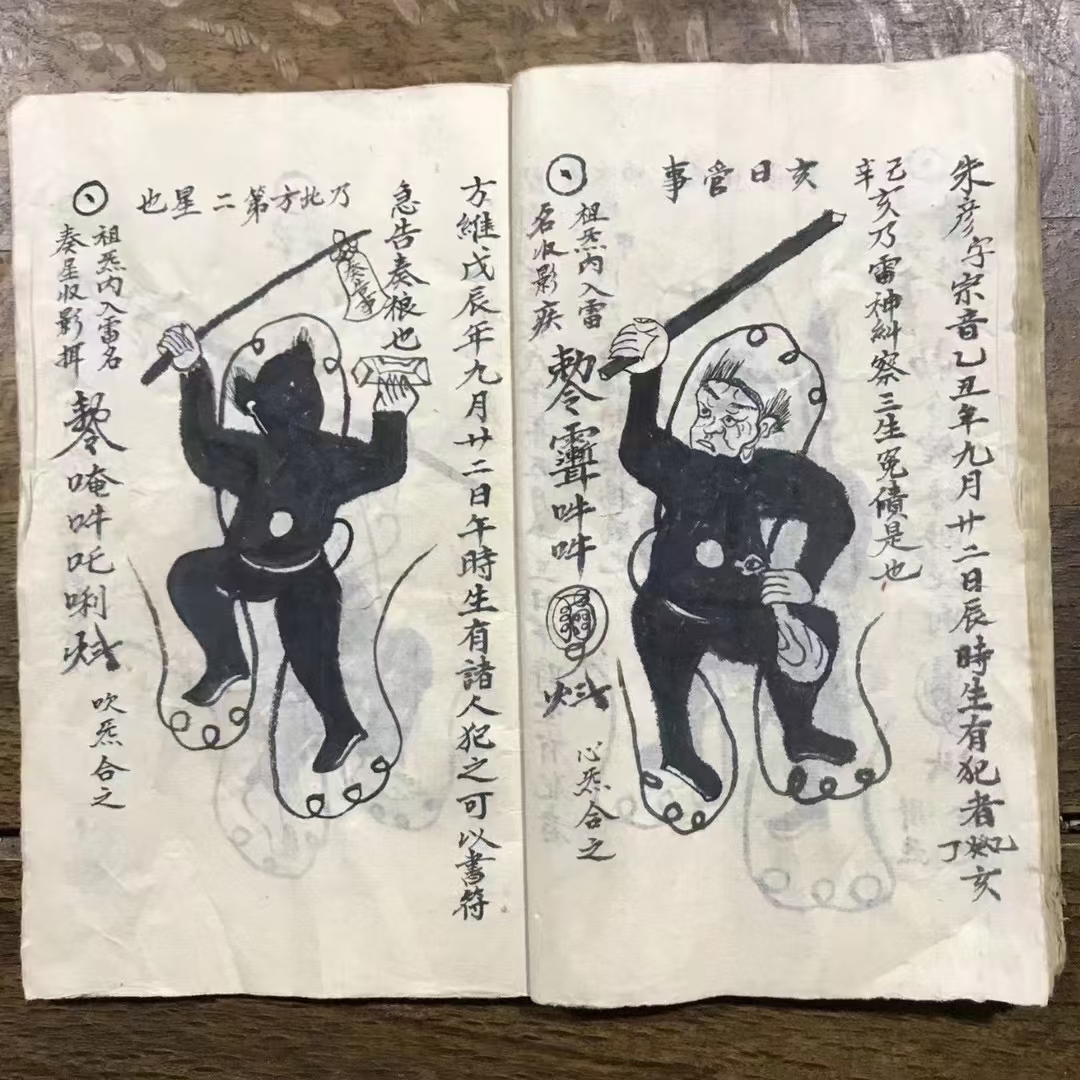 朱彥字宗音乙丑年九月廿二日辰時生有犯者
丁 乙亥
己
辛亥乃雷神糾察三生冤債是也
亥日管事
祖炁內入雷
名收影疾
敕令
吽吽
心炁合之
方維戊辰年九月廿二日午時生有諸人犯之可以書符
急告奏狼也
乃北方第二星也
祖炁內入雷名
奏星收影
唵吽吒唎
吹炁合之